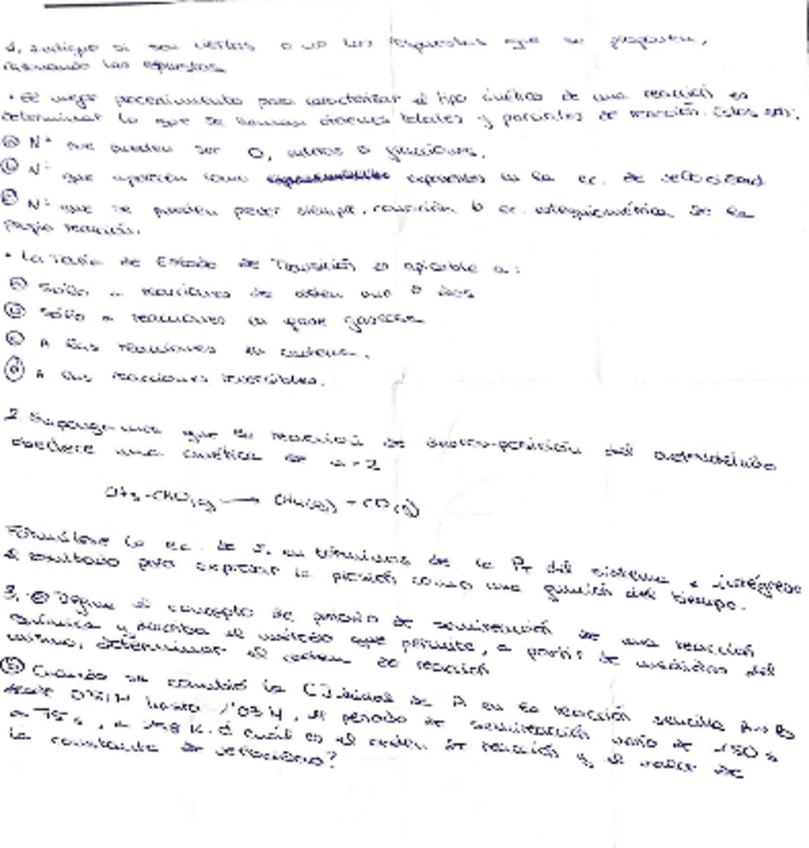 1. Indique si son ciertas o no las respuestas que se proponen,
razonando las respuestas.
• El mejor procedimiento para caracterizar el tipo cinético de una reacción es
determinar lo que se llaman órdenes totales y parciales de reacción. Estos son:
a Nº que pueden ser 0, enteros o fracciones.
b Nº que aparecen como exponentes en la ec. de velocidad
c Nº que se pueden prever siempre, conocida la ec. estequiométrica de la
propia reacción.
• La Teoría de Estado de Transición es aplicable a:
a Sólo a reacciones de orden uno o dos
b Sólo a reacciones en fase gaseosa
c A las reacciones en cadena.
d A las reacciones irreversibles.
2. Supongamos que la reacción de descomposición del acetaldehido
obedece una cinética de n=2
CH3-CHO(g) → CH4(g) + CO(g)
Formúlese la ec. de v. en términos de la PT del sistema e intégrese
el resultado para expresar la presión como una función del tiempo.
3. a Define el concepto de periodo de semirreacción de una reacción
química y describa el método que permite, a partir de medidas del
mismo, determinar el orden de reacción
b Cuando se cambió la C inicial de A en la reacción sencilla A→B
desde 0'51M hasta 1'03M, el periodo de semirreacción varió de 150 s
a 75 s, a 298 K. ¿ cuál es el orden de reacción y el valor de
la constante de velocidad?